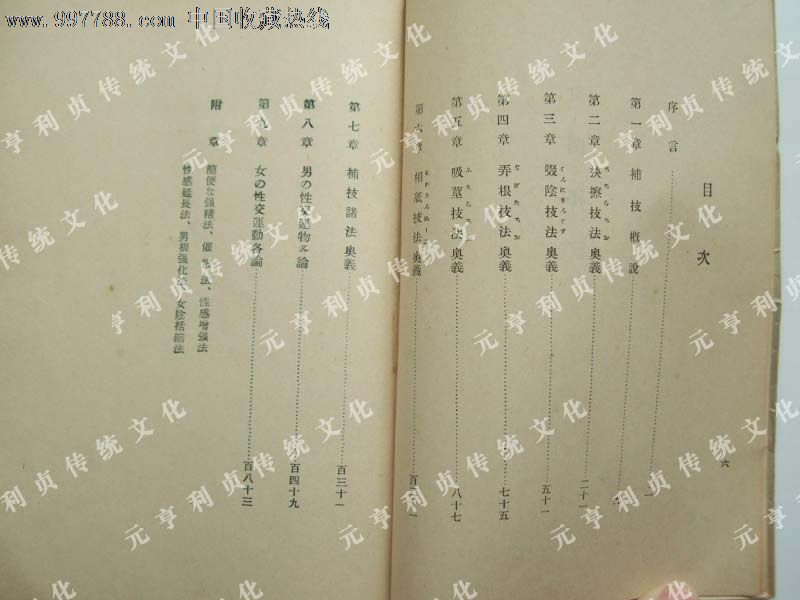 www.997788.com 中国收藏热线
目次
序言
第一章 補技概說
第二章 技法奧義 二十一
第三章 啜陰技法奧義 五十一
第四章 弄根技法奧義 七十五
第五章 吸莖技法奧義 八十七
第六章 相舐技法奧義
第七章 補技諸法奧義 百三十一
第八章 男の性交運物各論 百四十九
第九章 女の性交運動各論 百八十三
附章 簡便な强精法、催 法、性感增强法
性感延長法、男根强化法、女陰括縮法
六
元亨利贞传统文化